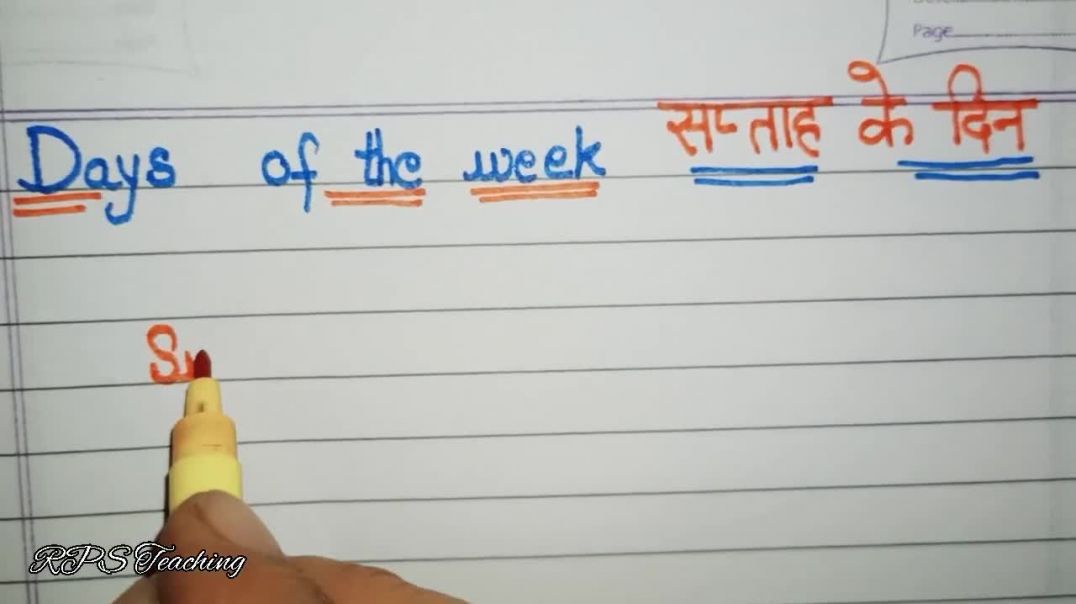 Page
Days of the week सप्ताह के दिन
Su
RPS Teaching